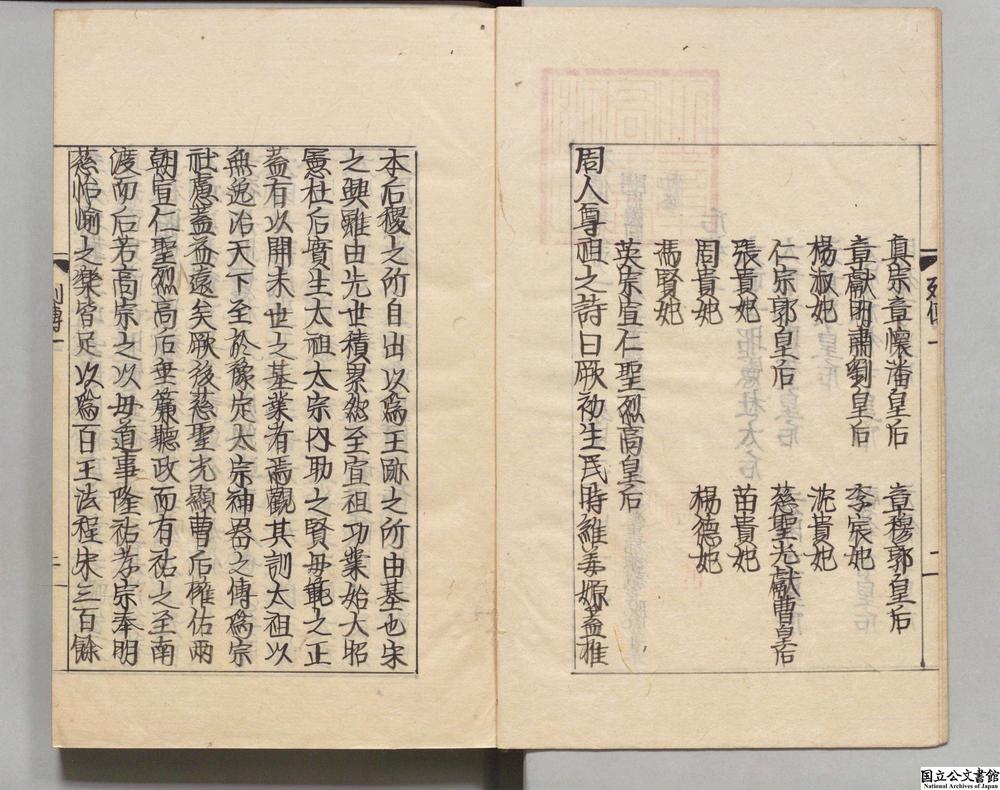 真宗章懷潘皇后　章穆郭皇后
章獻明肅劉皇后　李宸妃
楊淑妃　沈貴妃
仁宗郭皇后　慈聖光獻曹皇后
張貴妃　苗貴妃
周貴妃　楊德妃
馮賢妃
英宗宣仁聖烈高皇后
周人尊祖之詩曰厥初生民時維姜嫄蓋推
本后稷之所自出以爲王跡之所由基也宋
之興雖由先世積累然至宣祖功業始大昭
憲杜后實生太祖太宗內助之賢母範之正
蓋有以開未世之基業者焉觀其訓太祖以
無逸治天下至於豫定太宗神器之傳爲宗
社慮蓋益遠矣厥後慈聖光顯曹后擁佑兩
朝宣仁聖烈高后垂簾聽政而有祐之至南
渡而后若高宗之以母道事隆祐孝宗奉明
慈怡愉之樂皆足以爲百王法程宋三百餘
列傳一
国立公文書館
National Archives of Japan